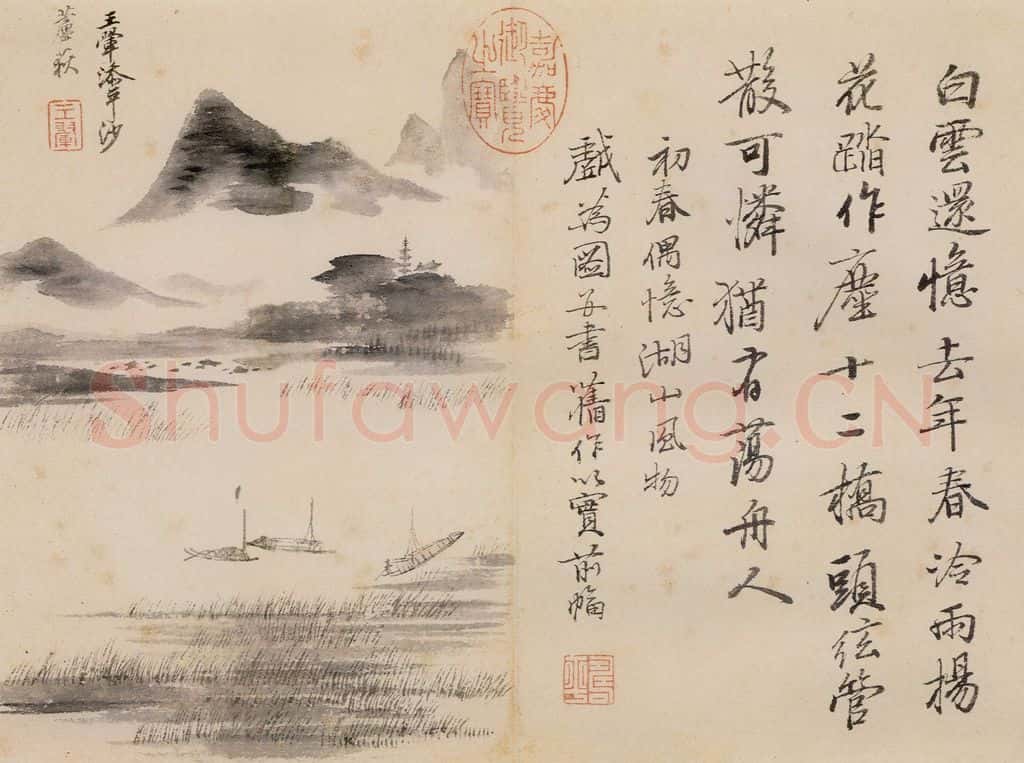 白雲還憶去年春冷雨楊
花踏作塵十二橋頭弦管
散可憐猶有蕩舟人
初春偶憶湖山風物
戲為圖并書舊作以實前幅
嘉慶御覽之寶
王翬添平沙
蘆荻
王翬
Shufawang.CN